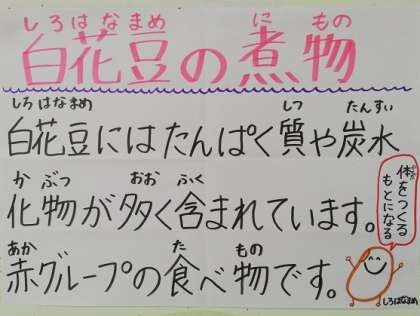 しろはなまめ に もの
白花豆の煮物
しろはなまめ しつ たんすい
白花豆にはたんぱく質や炭水
か ぶつ おお ふく
化物が多く含まれています。
あか た もの
赤グループの食べ物です。
体をつくる
もとになる
しろはなまめ